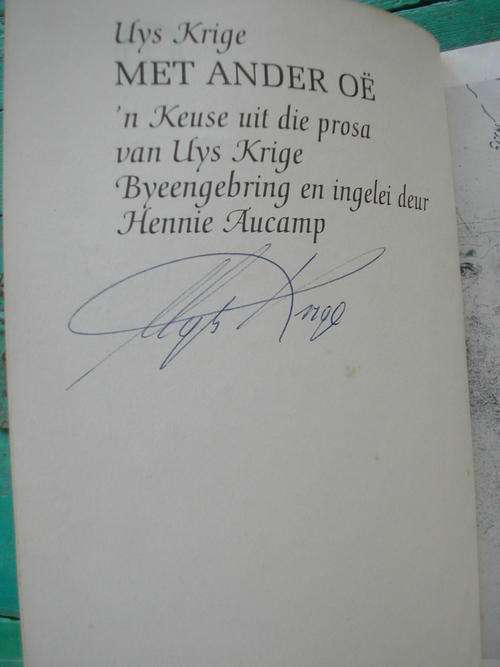 Uys Krige
MET ANDER OË
'n Keuse uit die prosa
van Uys Krige
Byeengebring en ingelei deur
Hennie Aucamp
Uys Krige